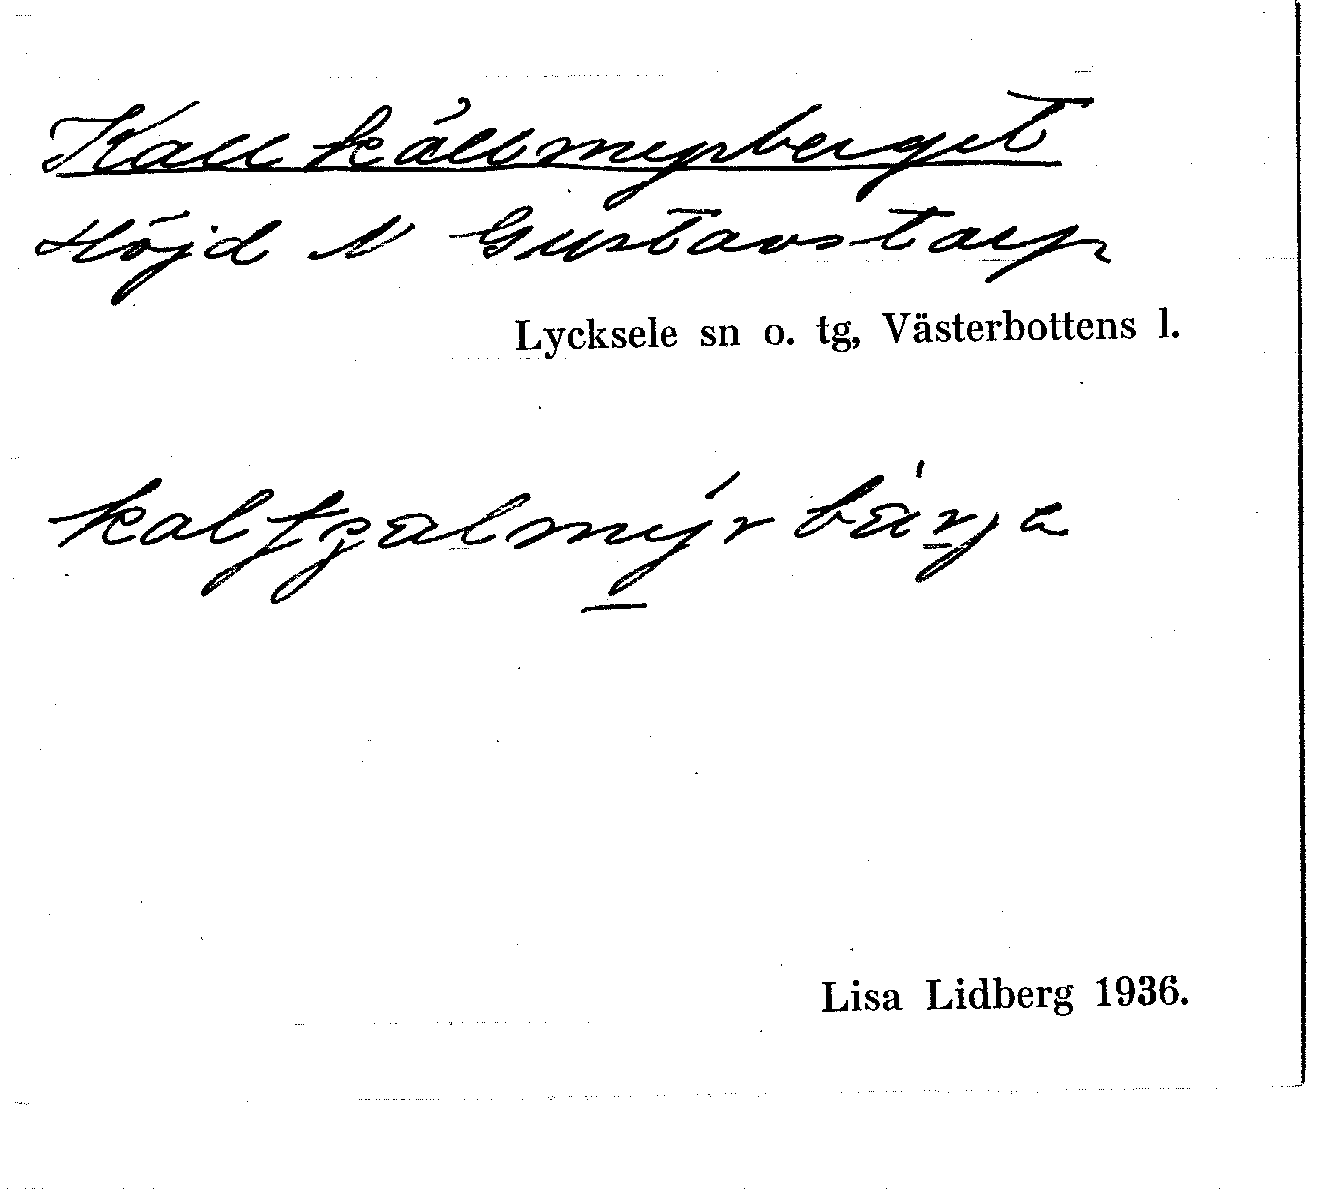 Kallkällmyrberget
Höjd N Gustavstorp
Lycksele sn o. tg, Västerbottens l.
Lisa Lidberg 1936.